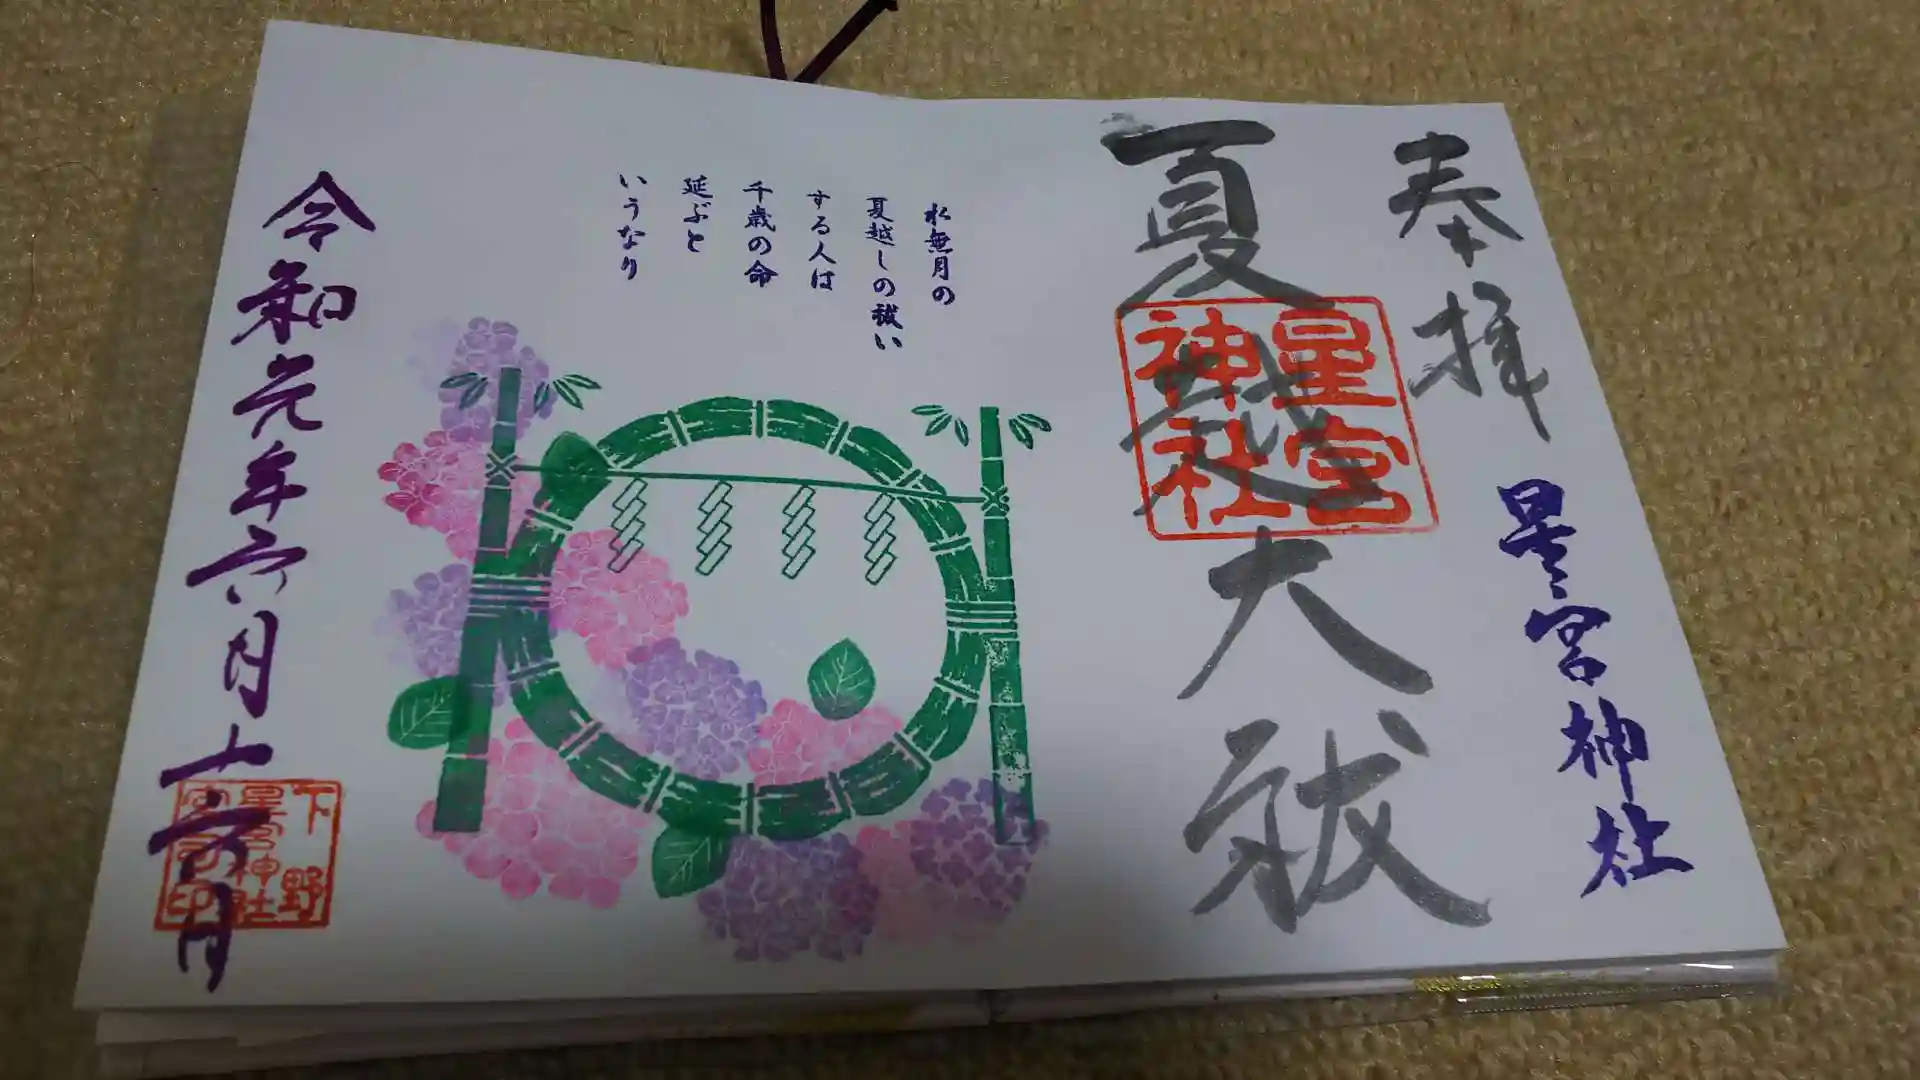 奉拝
星宮神社
夏越大祓
星宮
神社
水無月の
夏越しの祓い
する人は
千歳の命
延ぶと
いうなり
令和元年六月十六日
下野
星宮神社
宮司印